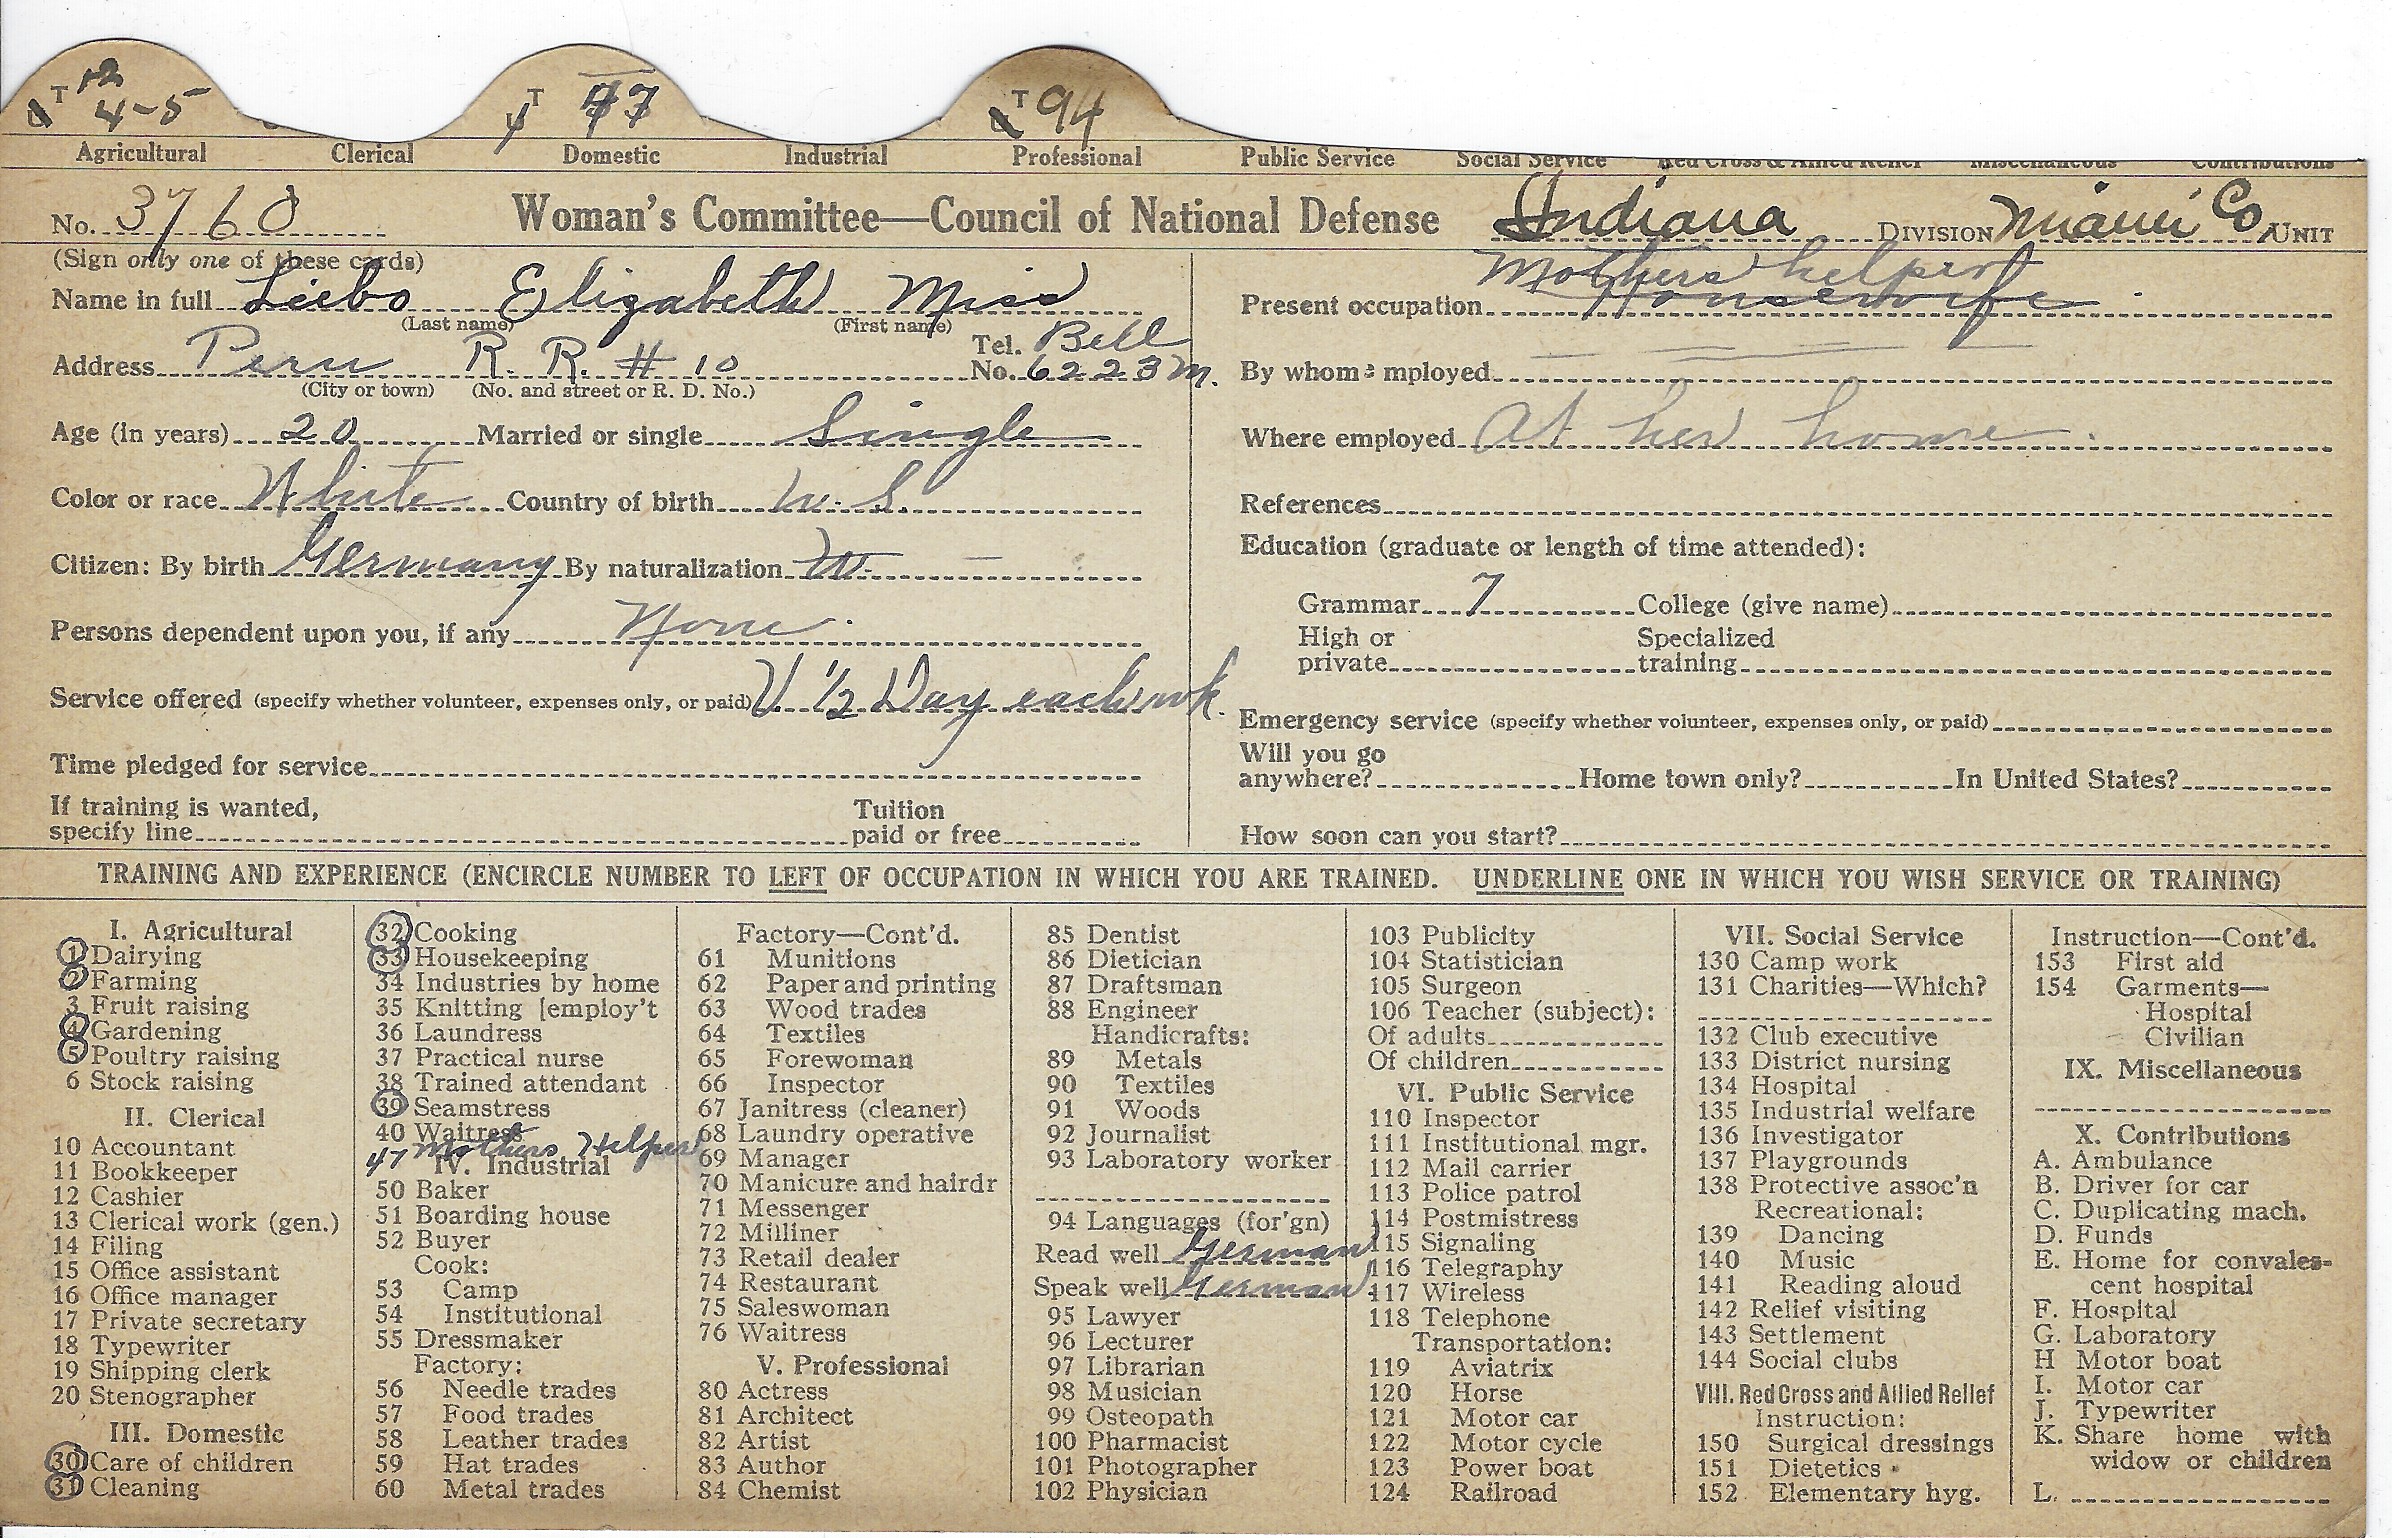 T 12 T 47 T 94
4-5
Agricultural Clerical Domestic Industrial Professional Public Service Social Service Red Cross & Allied Relief Miscellaneous Contributions
No. 3760 Woman's Committee—Council of National Defense Indiana DIVISION Miami Co. UNIT
(Sign only one of these cards)
Name in full Liebo Elizabeth Miss
(Last name) (First name)
Address Peru R. R. # 10 Tel. No. Bell 6223 M.
(City or town) (No. and street or R. D. No.)
Age (in years) 20 Married or single Single
Color or race White Country of birth U. S.
Citizen: By birth Germany By naturalization
Persons dependent upon you, if any None
Service offered (specify whether volunteer, expenses only, or paid) V ½ Day each wk.
Time pledged for service
If training is wanted,
specify line Tuition paid or free
Mothers helper
Present occupation Housewife
By whom employed
Where employed At her home
References
Education (graduate or length of time attended):
Grammar 7 College (give name)
High or private Specialized training
Emergency service (specify whether volunteer, expenses only, or paid)
Will you go
anywhere? Home town only? In United States?
How soon can you start?
TRAINING AND EXPERIENCE (ENCIRCLE NUMBER TO LEFT OF OCCUPATION IN WHICH YOU ARE TRAINED. UNDERLINE ONE IN WHICH YOU WISH SERVICE OR TRAINING)
I. Agricultural
1 Dairying
2 Farming
3 Fruit raising
4 Gardening
5 Poultry raising
6 Stock raising
II. Clerical
10 Accountant
11 Bookkeeper
12 Cashier
13 Clerical work (gen.)
14 Filing
15 Office assistant
16 Office manager
17 Private secretary
18 Typewriter
19 Shipping clerk
20 Stenographer
III. Domestic
30 Care of children
31 Cleaning
32 Cooking
33 Housekeeping
34 Industries by home
35 Knitting [employ't
36 Laundress
37 Practical nurse
38 Trained attendant
39 Seamstress
40 Waitress
47 Mothers Helper
IV. Industrial
50 Baker
51 Boarding house
52 Buyer
Cook:
53 Camp
54 Institutional
55 Dressmaker
Factory:
56 Needle trades
57 Food trades
58 Leather trades
59 Hat trades
60 Metal trades
Factory—Cont'd.
61 Munitions
62 Paper and printing
63 Wood trades
64 Textiles
65 Forewoman
66 Inspector
67 Janitress (cleaner)
68 Laundry operative
69 Manager
70 Manicure and hairdr
71 Messenger
72 Milliner
73 Retail dealer
74 Restaurant
75 Saleswoman
76 Waitress
V. Professional
80 Actress
81 Architect
82 Artist
83 Author
84 Chemist
85 Dentist
86 Dietician
87 Draftsman
88 Engineer
Handicrafts:
89 Metals
90 Textiles
91 Woods
92 Journalist
93 Laboratory worker
94 Languages (for'gn)
Read well German
Speak well German
95 Lawyer
96 Lecturer
97 Librarian
98 Musician
99 Osteopath
100 Pharmacist
101 Photographer
102 Physician
103 Publicity
104 Statistician
105 Surgeon
106 Teacher (subject):
Of adults
Of children
VI. Public Service
110 Inspector
111 Institutional mgr.
112 Mail carrier
113 Police patrol
114 Postmistress
115 Signaling
116 Telegraphy
117 Wireless
118 Telephone
Transportation:
119 Aviatrix
120 Horse
121 Motor car
122 Motor cycle
123 Power boat
124 Railroad
VII. Social Service
130 Camp work
131 Charities—Which?
132 Club executive
133 District nursing
134 Hospital
135 Industrial welfare
136 Investigator
137 Playgrounds
138 Protective assoc'n
Recreational:
139 Dancing
140 Music
141 Reading aloud
142 Relief visiting
143 Settlement
144 Social clubs
VIII. Red Cross and Allied Relief
Instruction:
150 Surgical dressings
151 Dietetics
152 Elementary hyg.
Instruction—Cont'd.
153 First aid
154 Garments—
Hospital
Civilian
IX. Miscellaneous
X. Contributions
A. Ambulance
B. Driver for car
C. Duplicating mach.
D. Funds
E. Home for convales-
cent hospital
F. Hospital
G. Laboratory
H Motor boat
I. Motor car
J. Typewriter
K. Share home with
widow or children
L.